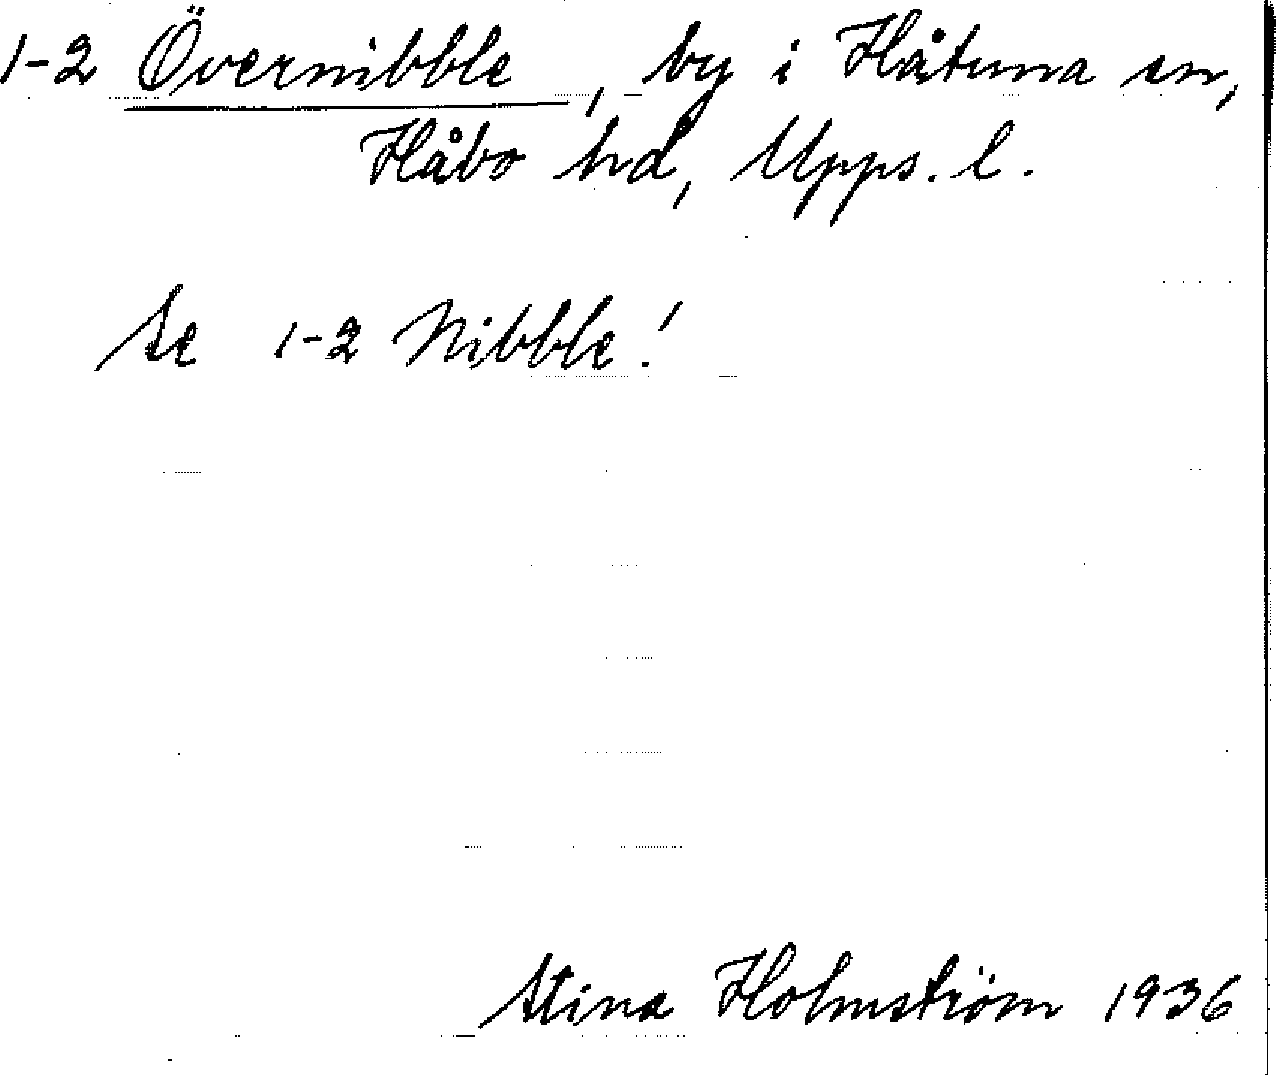 1-2 Övernibble, by i Håtuna sn,
Håbo hd, Upps. l.
Se 1-2 Nibble!
Stina Holmström 1936